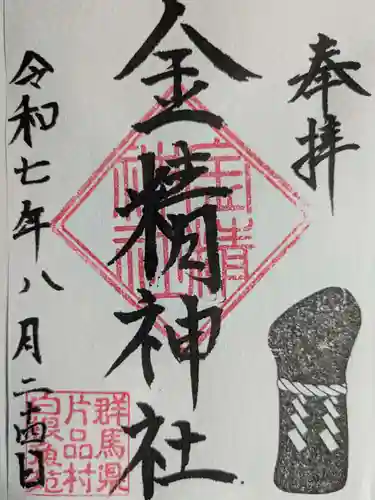 奉拝
金精神社
令和七年八月二十四日
金精神社
群馬県
片品村